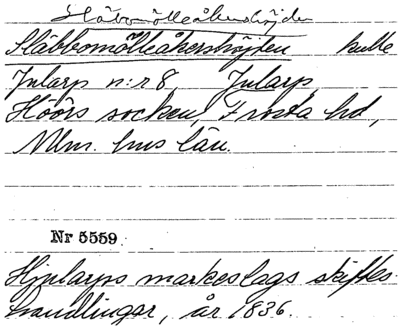 Släbbomölleåkershöjden
Släbbomölleåkershöjden kulle
Jularp n:r 8 Jularp,
Höörs socken, Frosta hd,
Mlm. hus län.
Nr 5559
Hjularps markeslags skiftes-
handlingar, år 1836.